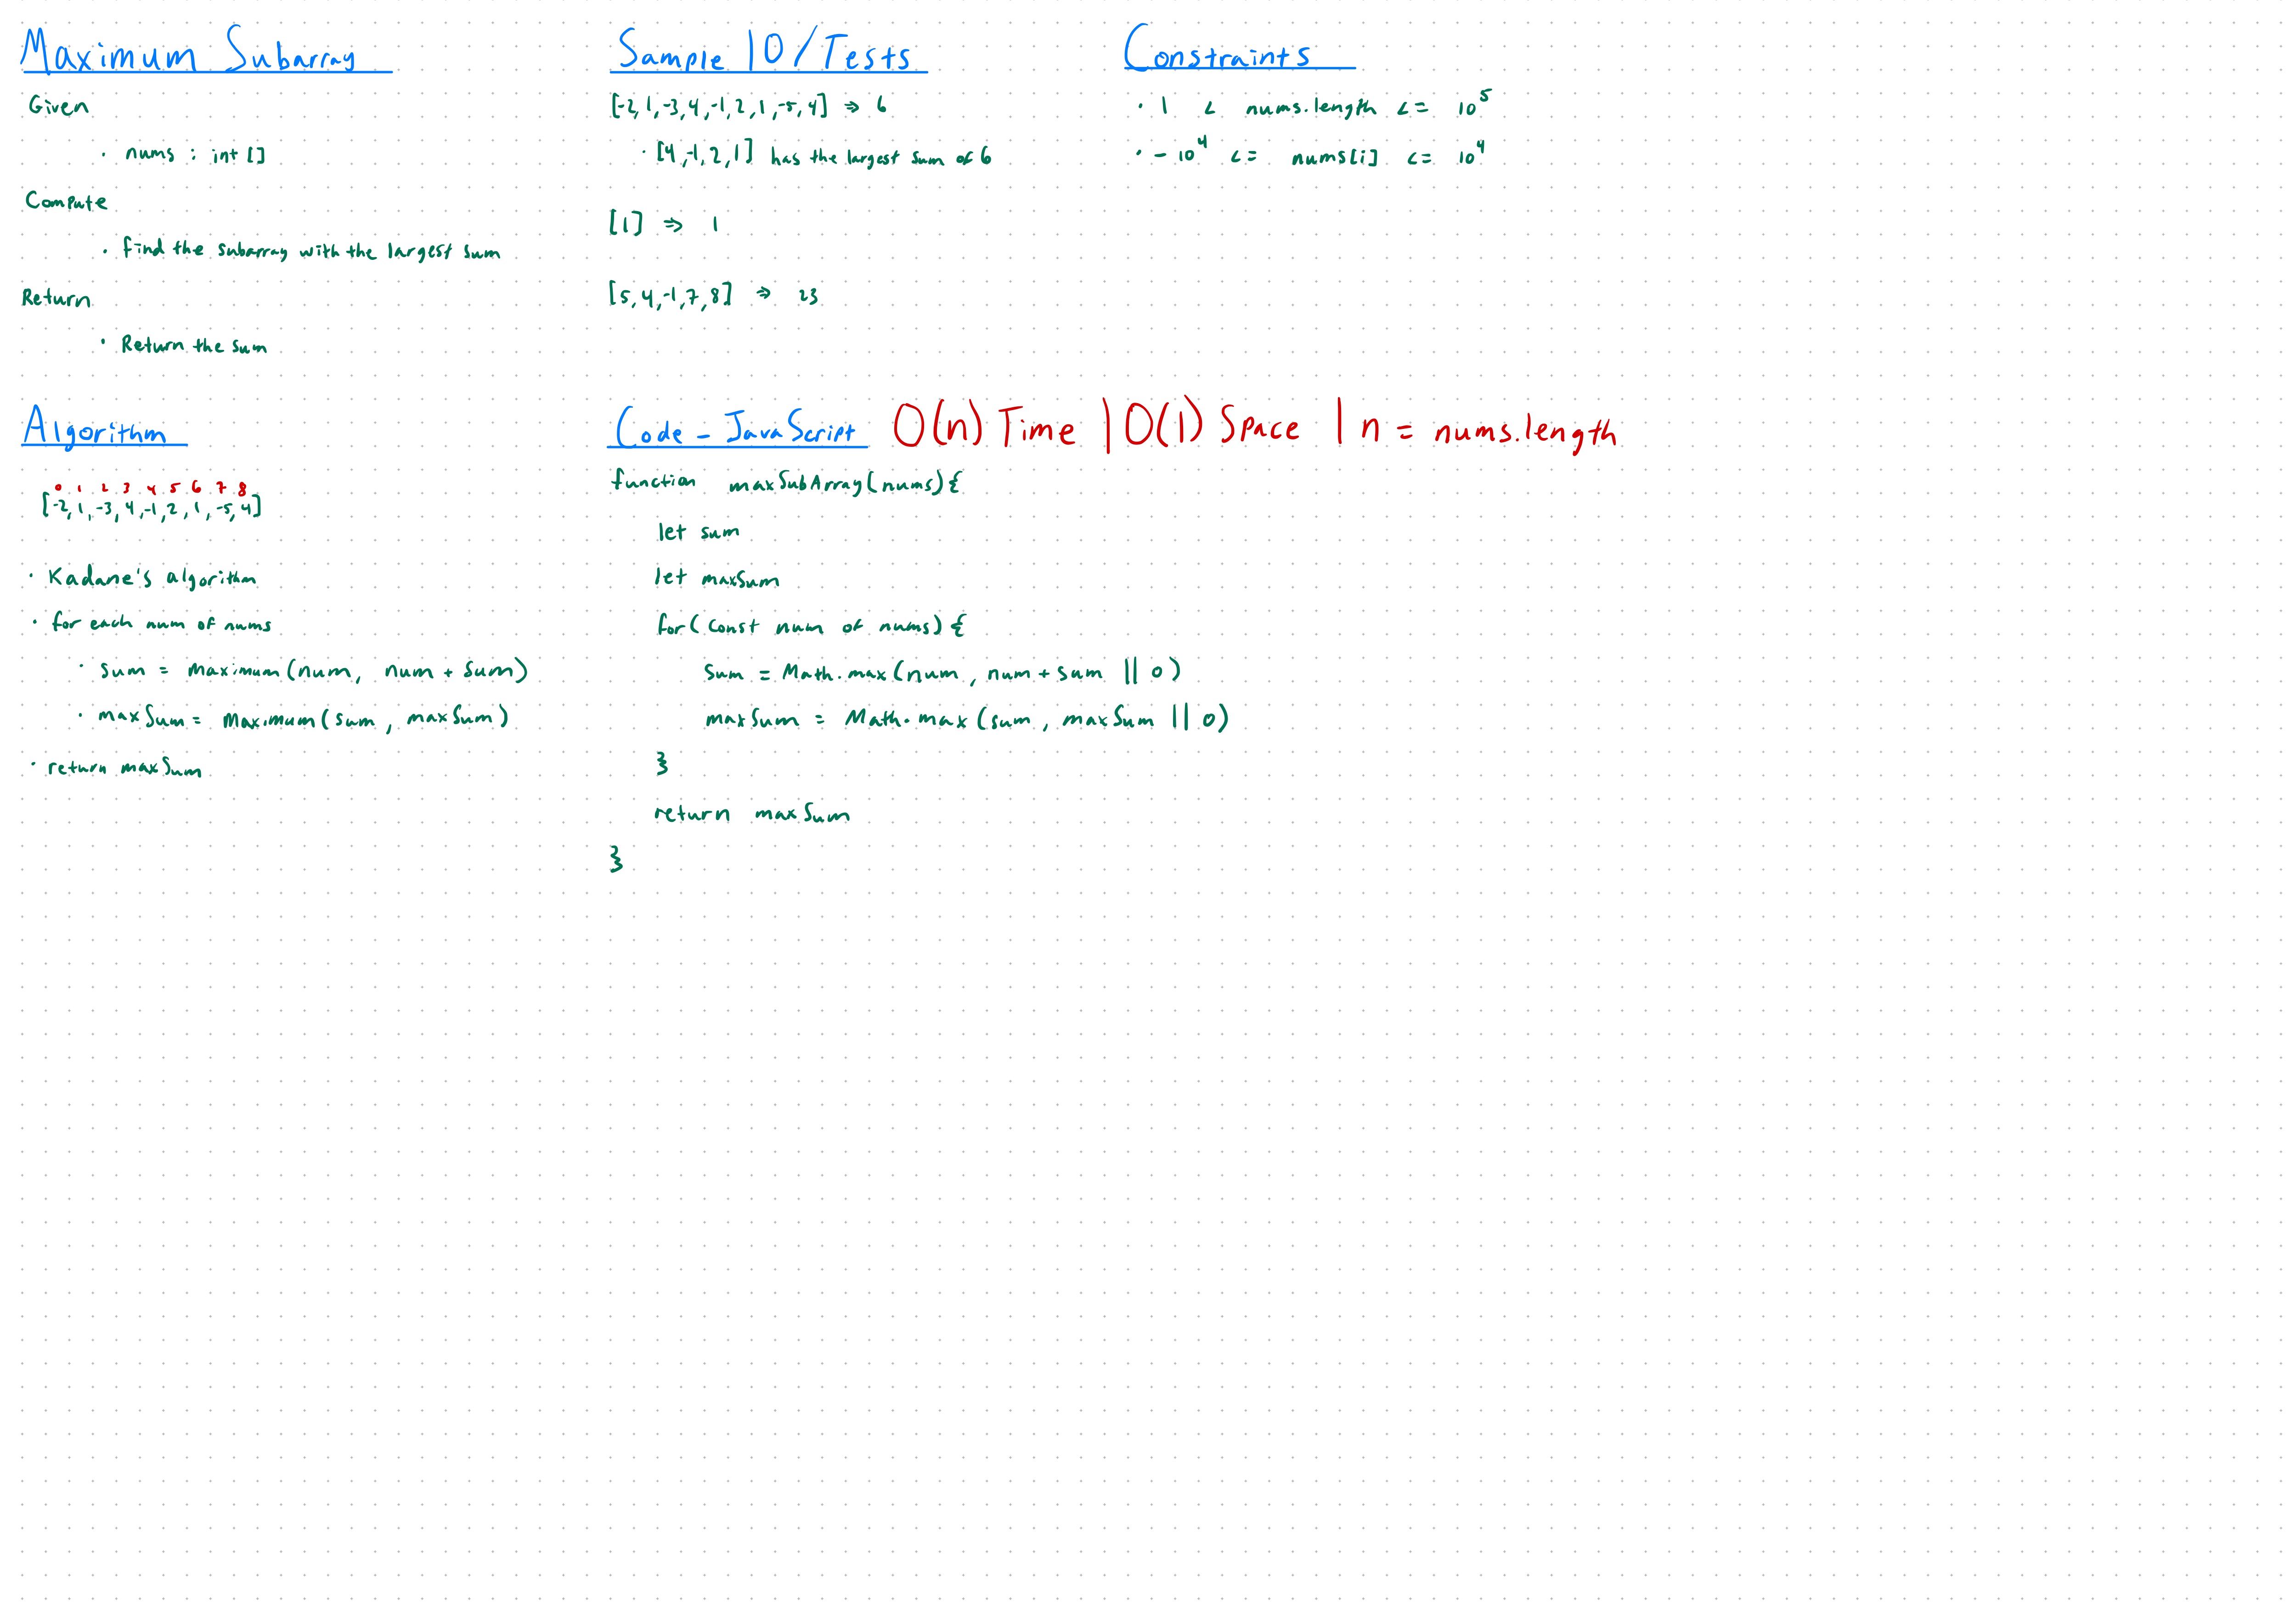 Maximum Subarray
Given
· nums : int []
Compute
· find the subarray with the largest sum
Return
· Return the sum
Sample IO/Tests
[-2, 1, -3, 4, -1, 2, 1, -5, 4] => 6
· [4, -1, 2, 1] has the largest sum of 6
[1] => 1
[5, 4, -1, 7, 8] => 23
Constraints
· 1 < nums.length <= 10⁵
· -10⁴ <= nums[i] <= 10⁴
Algorithm
0 1 2 3 4 5 6 7 8
[-2, 1, -3, 4, -1, 2, 1, -5, 4]
· Kadane's algorithm
· for each num of nums
· sum = maximum(num, num + sum)
· maxSum = maximum(sum, maxSum)
· return maxSum
Code - JavaScript O(n) Time | O(1) Space | n = nums.length
function maxSubArray(nums){
let sum
let maxSum
for(const num of nums){
sum = Math.max(num, num + sum || 0)
maxSum = Math.max(sum, maxSum || 0)
}
return maxSum
}